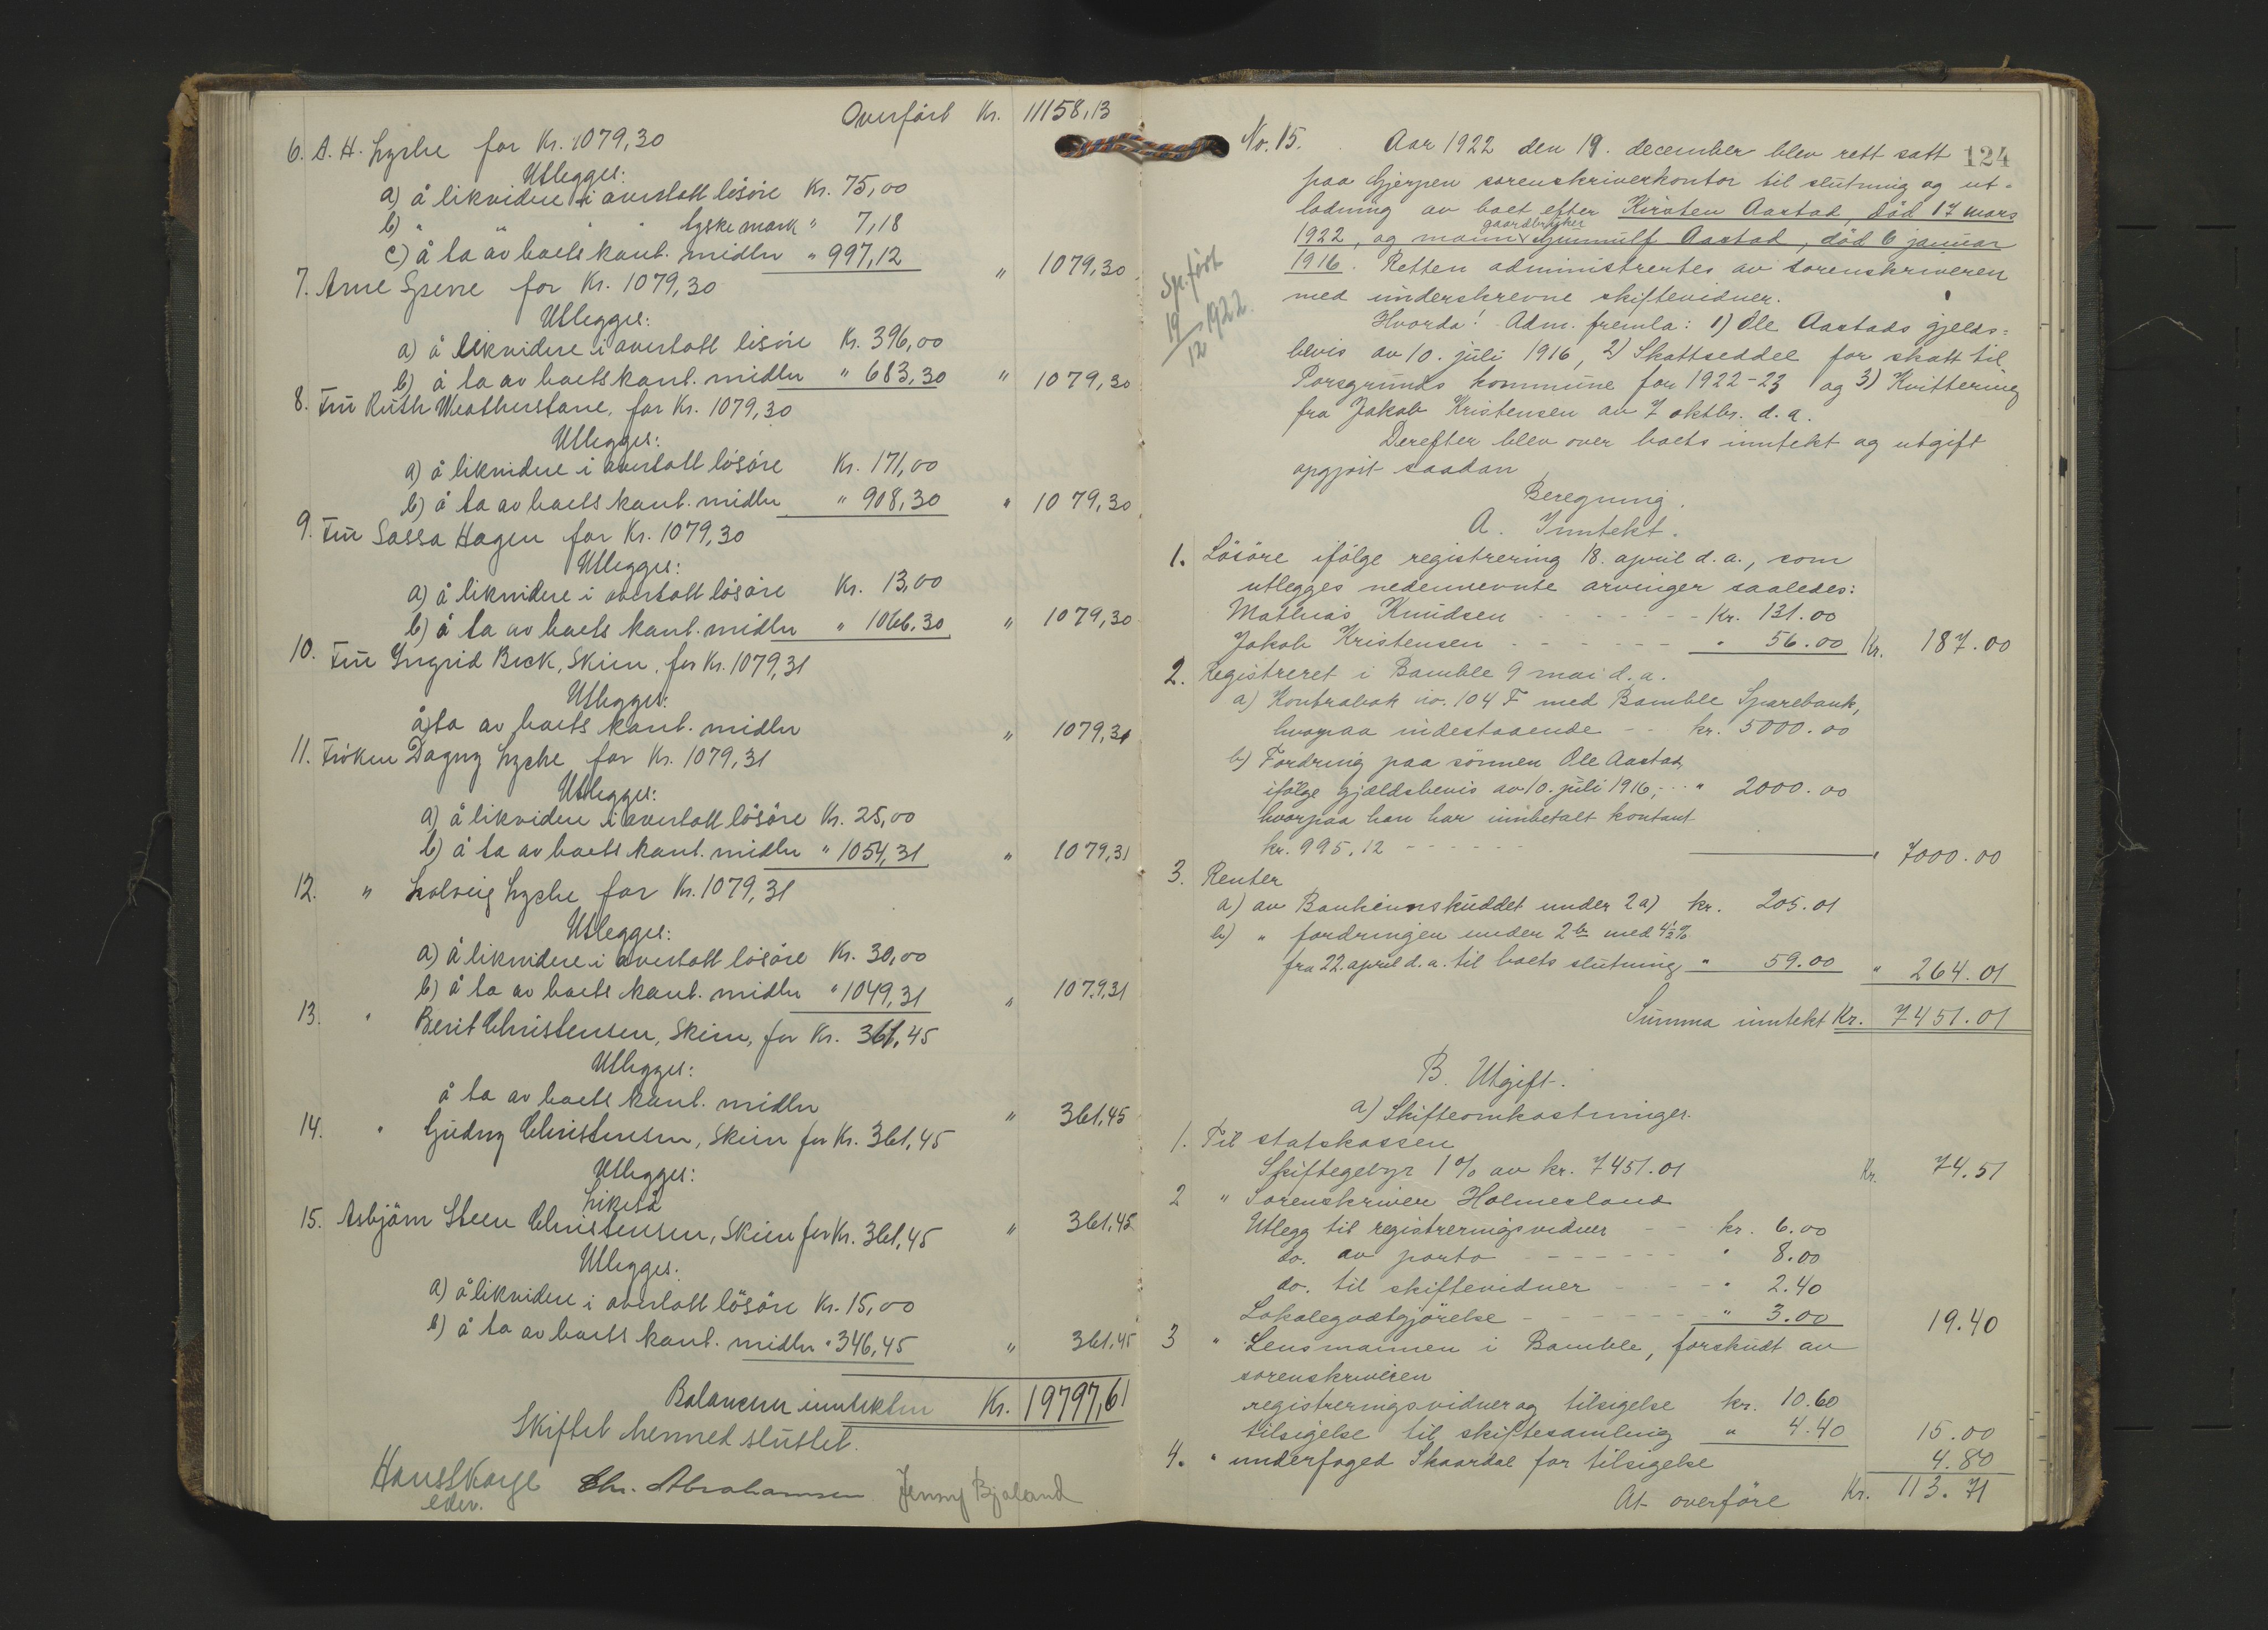 Overført Kr. 11158,13
6. A. H. Lyche for Kr. 1079,30
Utlegges:
a) å likvidere i overtatt løsøre Kr. 75,00
b) " " " tyske mark " 7,18
c) å ta av boets kont. midler " 997,12 " 1079,30
7. Arne Sperre for Kr. 1079,30
Utlegges:
a) å likvidere i overtatt løsøre Kr. 396,00
b) å ta av boets kont. midler " 683,30 " 1079,30
8. Fru Ruth Weatherstone, for Kr. 1079,30
Utlegges:
a) å likvidere i overtatt løsøre Kr. 171,00
b) å ta av boets kont. midler " 908,30 " 1079,30
9. Fru Sassa Hagen for Kr. 1079,30
Utlegges:
a) å likvidere i overtatt løsøre Kr. 13,00
b) å ta av boets kont. midler " 1066,30 " 1079,30
10. Fru Ingrid Beck, Skien, for Kr. 1079,31
Utlegges:
å ta av boets kont. midler " 1079,31
11. Frøken Dagny Lyche for Kr. 1079,31
Utlegges:
a) å likvidere i overtatt løsøre Kr. 25,00
b) å ta av boets kont. midler " 1054,31 " 1079,31
12. " Solveig Lyche for Kr. 1079,31
Utlegges:
a) å likvidere i overtatt løsøre Kr. 30,00
b) å ta av boets kont. midler " 1049,31 " 1079,31
13. " Berit Christensen, Skien, for Kr. 361,45
Utlegges:
å ta av boets kont. midler " 361,45
14. " Gudny Christensen, Skien for Kr. 361,45
Utlegges:
Likeså " 361,45
15. Asbjørn Steen Christensen, Skien for Kr. 361,45
Utlegges:
a) å likvidere i overtatt løsøre Kr. 15,00
b) å ta av boets kont. midler " 346,45 " 361,45
Balancerer inntekten Kr. 19797,61
Skiftet hermed sluttet.
Chr. Abrahamsen Jenny Bjaland
edsv.
124
No. 15. Aar 1922 den 19. december blev rett satt
paa Gjerpen sorenskriverkontor til slutning og ut-
lodning av boet efter Kirsten Aastad, død 17 mars
1922, og mann gaardbruker Gunnulf Aastad, død 6 januar
1916. Retten administrertes av sorenskriveren
med underskrevne skiftevidner.
Sp. ført
19/12 1922.
Hvorda! Adm. fremla: 1) Ole Aastads gjelds-
bevis av 10. juli 1916, 2) Skattseddel for skatt til
Porsgrunds kommune for 1922-23 og 3) Kvittering
fra Jakob Kristensen av 7 oktbr. d. a.
Derefter blev over boets inntekt og utgift
opgjort saadan
Beregning.
A. Inntekt.
1. Løsøre ifølge registrering 18. april d. a., som
utlegges nedennevnte arvinger saaledes:
Mathias Knudsen - - - - Kr. 131.00
Jakob Kristensen - - - - - " 56.00 Kr. 187.00
2. Registreret i Bamble 9 mai d. a.
a) Kontrabok no. 104 F med Bamble Sparebank,
hvorpaa indestaaende - - kr. 5000.00
b) Fordring paa sønnen Ole Aastad
ifølge gjældsbevis av 10. juli 1916, - - " 2000.00
hvorpaa han har innbetalt kontant
kr. 995.12 - - - - - - " 7000.00
3. Renter
a) av Bankinnskuddet under 2 a) kr. 205.01
b) " fordringen under 2 b med 4½%
fra 22. april d. a. til boets slutning " 59.00 " 264.01
Summa inntekt Kr. 7451.01
B. Utgift.
a) Skifteomkostninger.
1. Til statskassen
Skiftegebyr 1% av kr. 7451.01 Kr. 74.51
2 " Sorenskriver Holmesland
Utlegg til registreringsvidner - - kr. 6.00
do. av porto - - - - - - " 8.00
do. til skiftevidner - - - - " 2.40
Lokalegodtgjørelse - - - - - " 3.00 19.40
3 " Lensmannen i Bamble, forskudt av
sorenskriveren
registreringsvidner og tilsigelse kr. 10.60
tilsigelse til skiftesamling " 4.40 15.00
4. " underfoged Skaardal for tilsigelse 4.80
At overføre Kr. 113.71